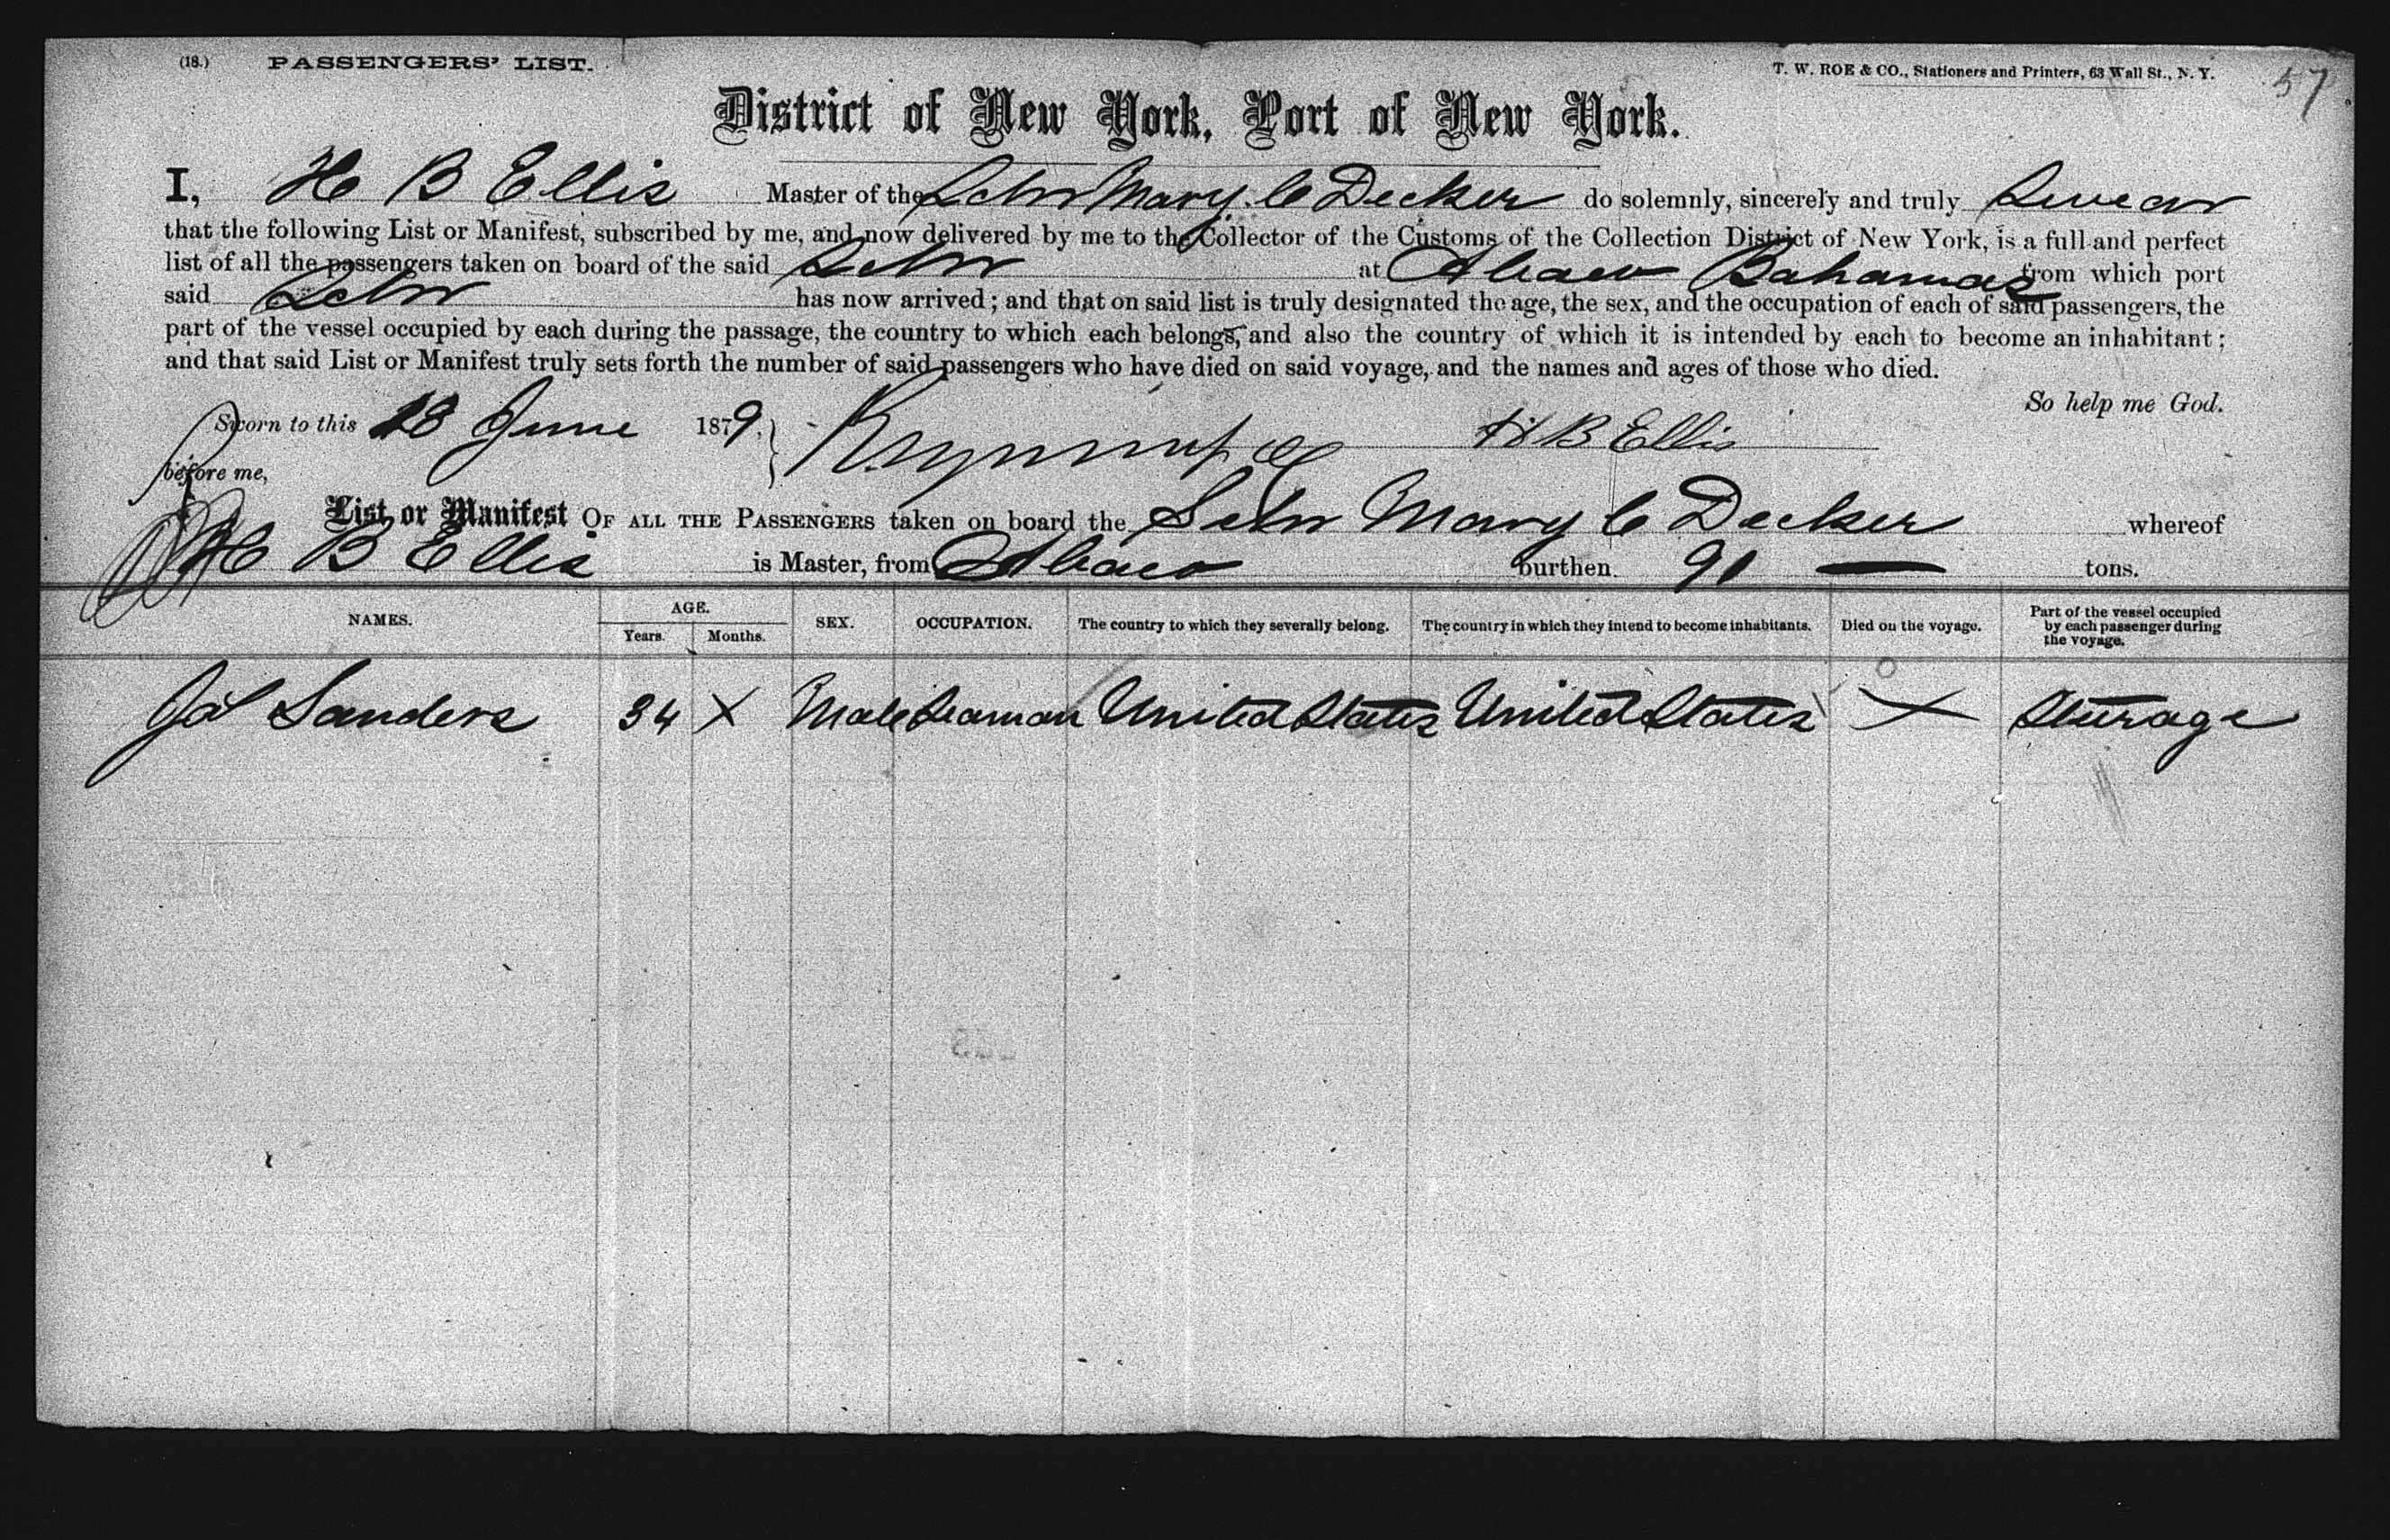 (18.) PASSENGERS' LIST. T. W. ROE & CO., Stationers and Printers, 63 Wall St., N. Y. 57
District of New York, Port of New York.
I, H B Ellis Master of the Schr Mary C Decker do solemnly, sincerely and truly Swear
that the following List or Manifest, subscribed by me, and now delivered by me to the Collector of the Customs of the Collection District of New York, is a full and perfect
list of all the passengers taken on board of the said Schr at Abaco Bahamas from which port
said Schr has now arrived; and that on said list is truly designated the age, the sex, and the occupation of each of said passengers, the
part of the vessel occupied by each during the passage, the country to which each belongs, and also the country of which it is intended by each to become an inhabitant;
and that said List or Manifest truly sets forth the number of said passengers who have died on said voyage, and the names and ages of those who died.
So help me God.
Sworn to this 18 June 1879. H B Ellis
before me,
List or Manifest OF ALL THE PASSENGERS taken on board the Schr Mary C Decker whereof
H B Ellis is Master, from Abaco burthen 91 — tons.
NAMES. AGE. Years. Months. SEX. OCCUPATION. The country to which they severally belong. The country in which they intend to become inhabitants. Died on the voyage. Part of the vessel occupied by each passenger during the voyage.
Jas Sanders 34 X Male Seaman United States United States X Sturage